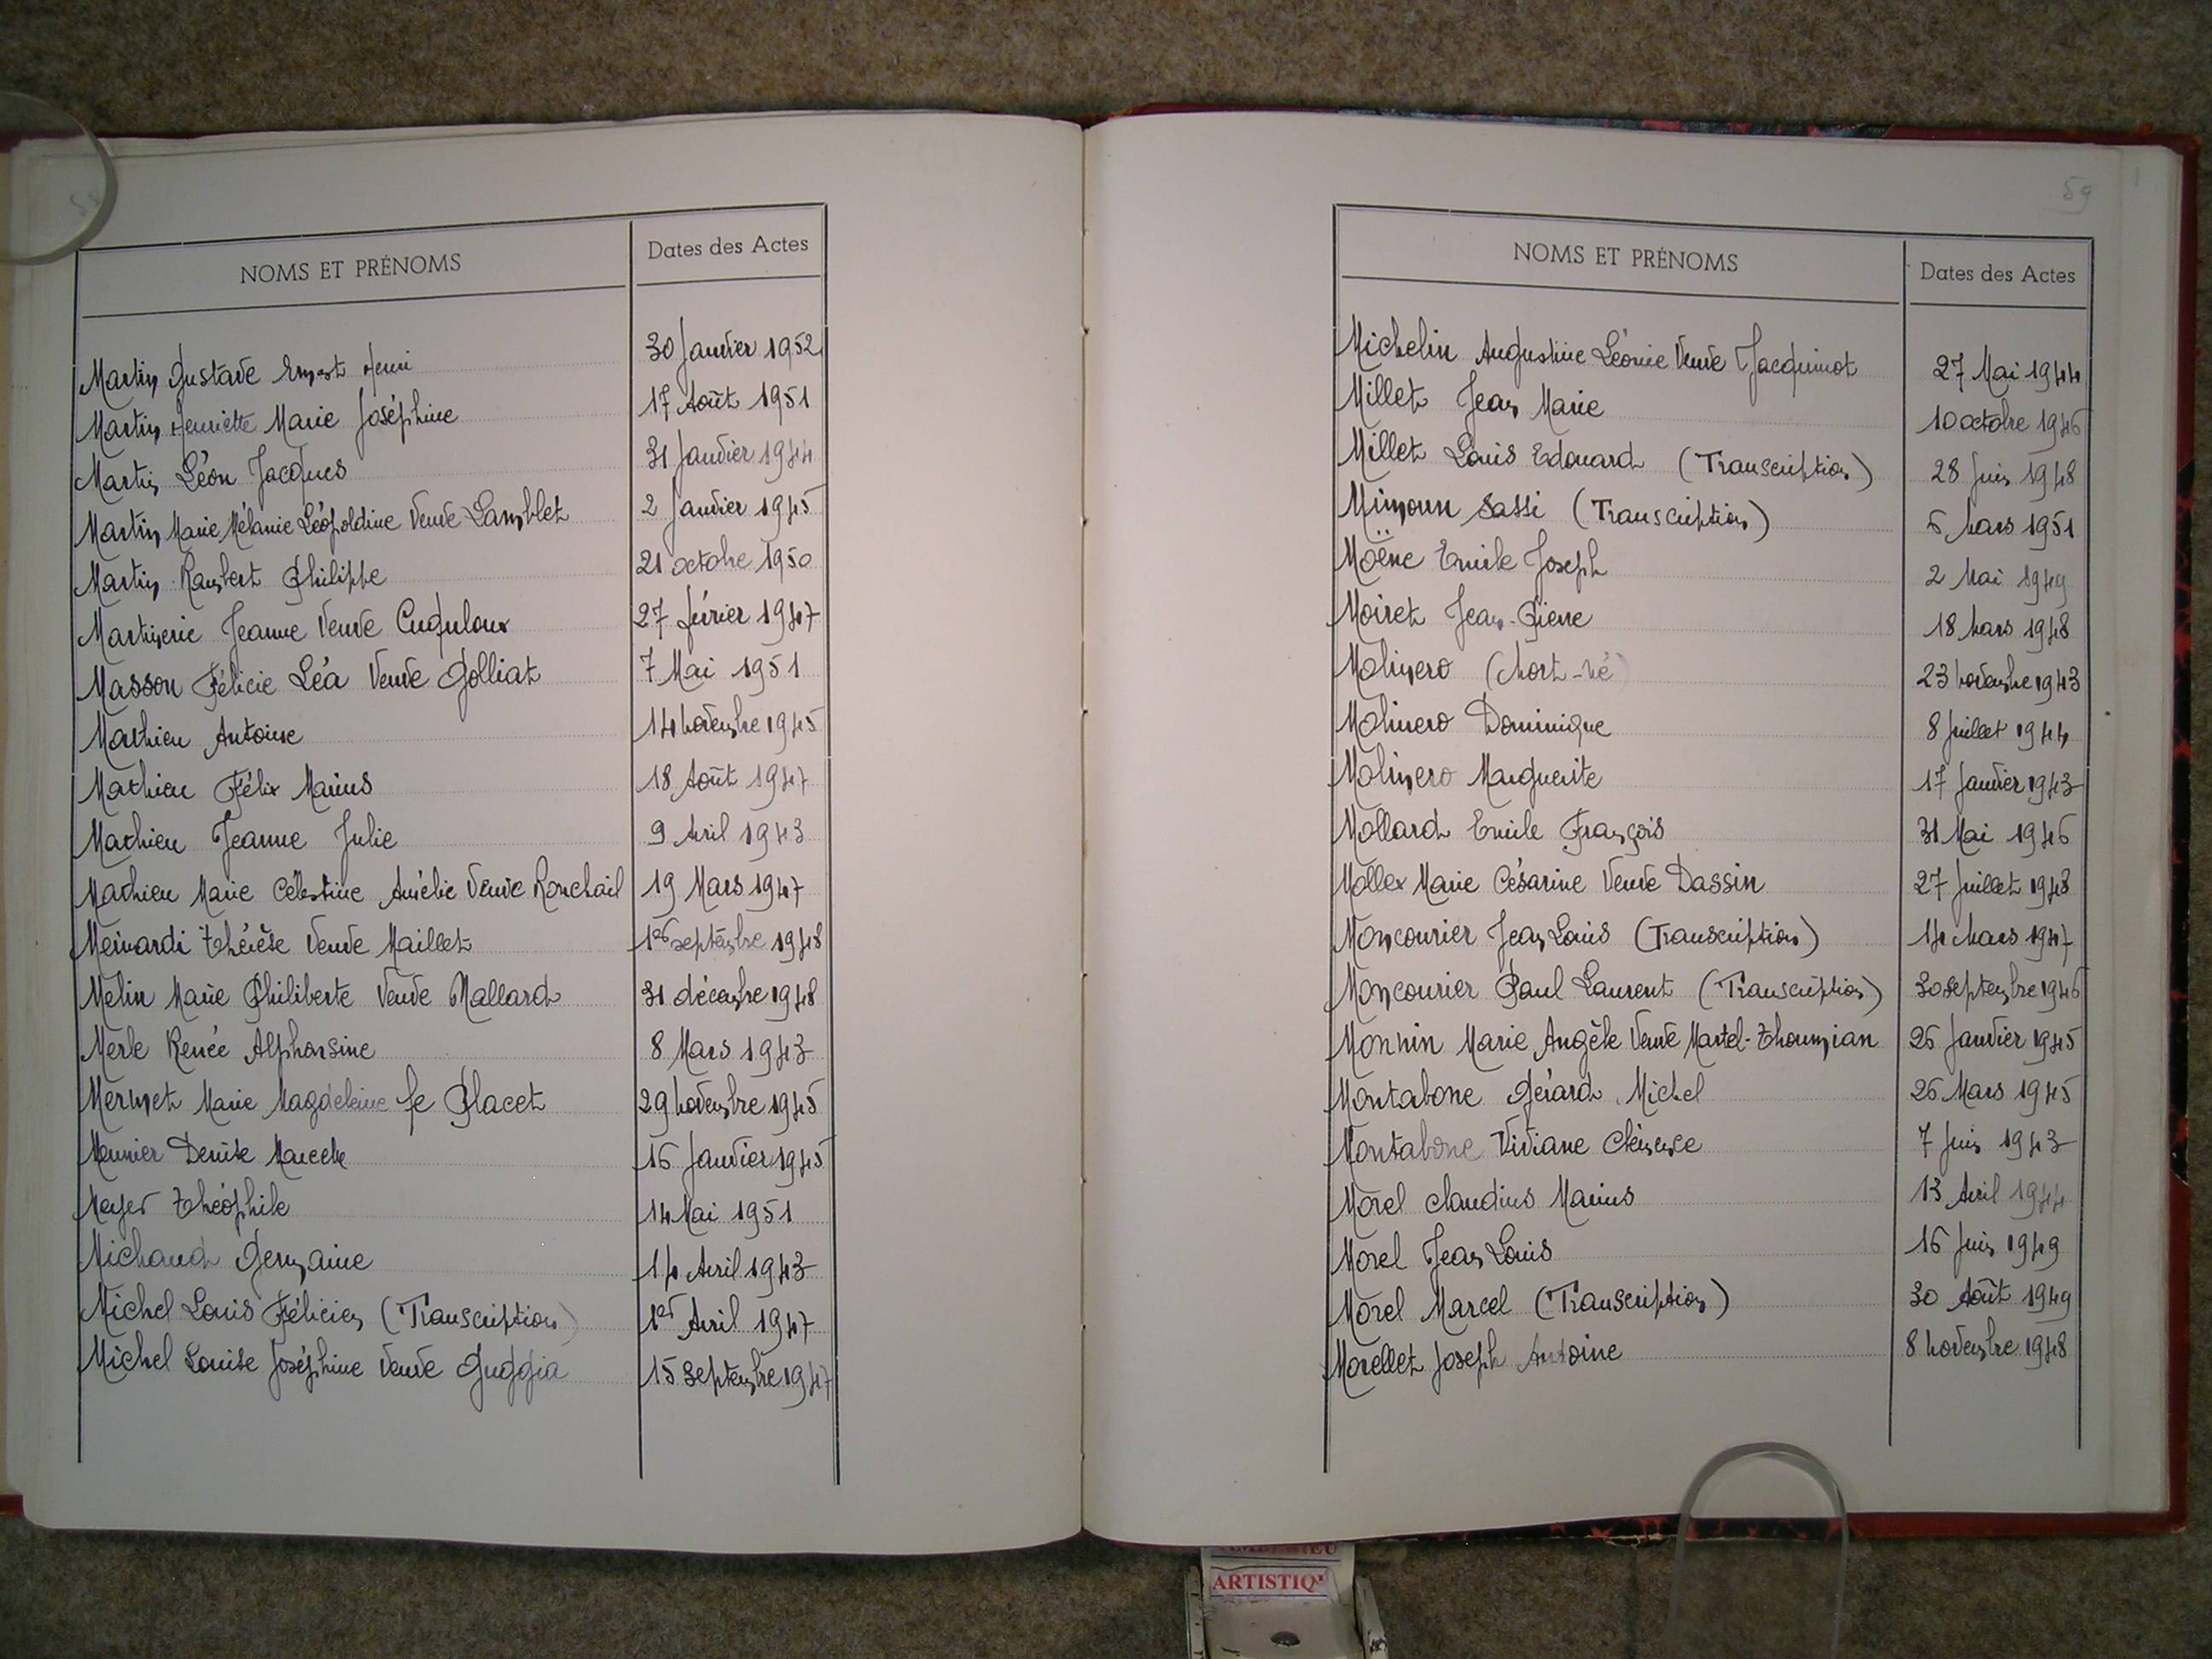 NOMS ET PRÉNOMS Dates des Actes
Martin Gustave Ernest Henri 30 Janvier 1952
Martin Henriette Marie Joséphine 17 Août 1951
Martin Léon Jacques 31 Janvier 1944
Martin Marie Mélanie Léopoldine Veuve Lamblet 2 Janvier 1945
Martin Rambert Philippe 21 octobre 1950
Martinerie Jeanne Veuve Cuquloux 27 février 1947
Masson Félicie Léa Veuve Golliat 7 Mai 1951
Mathieu Antoine 14 novembre 1945
Mathieu Félix Marius 18 Août 1947
Mathieu Jeanne Julie 9 Avril 1943
Mathieu Marie Célestine Amélie Veuve Ronchail 19 Mars 1947
Meinardi Thérèse Veuve Maillet 1er septembre 1948
Melin Marie Philiberte Veuve Mallard 31 décembre 1948
Merle Renée Alphonsine 8 Mars 1943
Mermet Marie Magdeleine fe Placet 29 novembre 1945
Meunier Denise Marcelle 16 Janvier 1945
Meyer Théophile 14 Mai 1951
Michaud Germaine 14 Avril 1943
Michel Louis Félicien (Transcription) 1er Avril 1947
Michel Louise Joséphine Veuve Guggia 15 septembre 1947
59
NOMS ET PRÉNOMS Dates des Actes
Michelin Augustine Léonie Veuve Jacquinot 27 Mai 1944
Millet Jean Marie 10 octobre 1946
Millet Louis Edouard (Transcription) 28 Juin 1948
Mimoun Sassi (Transcription) 6 Mars 1951
Moëne Emile Joseph 2 Mai 1949
Moiret Jean-Pierre 18 Mars 1948
Molinero (Mort-né) 23 novembre 1943
Molinero Dominique 8 Juillet 1944
Molinero Marguerite 17 Janvier 1943
Mollard Emile François 31 Mai 1946
Mollex Marie Césarine Veuve Dassin 27 Juillet 1948
Moncourier Jean Louis (Transcription) 14 Mars 1947
Moncourier Paul Laurent (Transcription) 30 septembre 1946
Monnin Marie Angèle Veuve Martel-Thoumian 26 Janvier 1945
Montabone Gérard Michel 26 Mars 1945
Montabone Viviane Clémence 7 Juin 1943
Morel Claudius Marius 13 Avril 1944
Morel Jean Louis 16 Juin 1949
Morel Marcel (Transcription) 30 Août 1949
Morellet Joseph Antoine 8 novembre 1948
ARTISTIQ